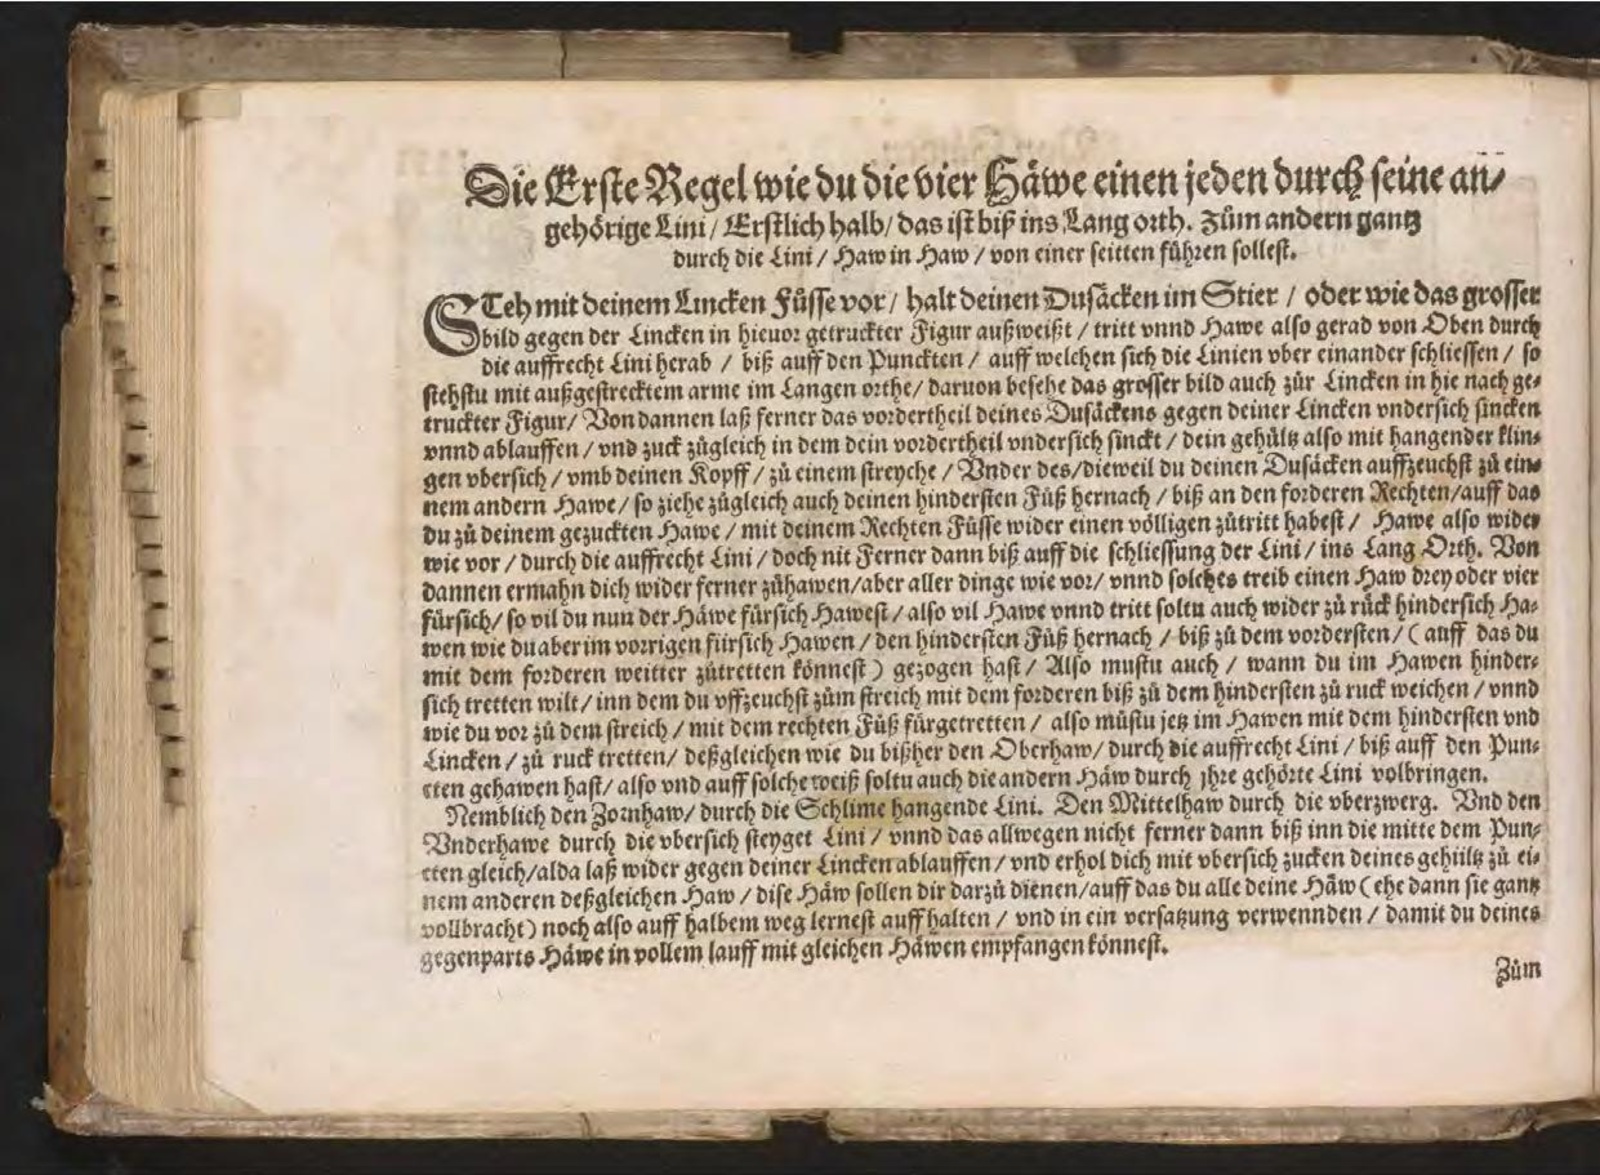 Die Erste Regel wie du die vier Häwe einen jeden durch seine an/
gehörige Lini / Erstlich halb / das ist biß ins Lang orth. Zům andern gantz
durch die Lini / Haw in Haw / von einer seitten führen sollest.
STeh mit deinem Lincken Fůsse vor / halt deinen Dusäcken im Stier / oder wie das grosser
bild gegen der Lincken in hieuor getruckter Figur außweißt / tritt vnnd Hawe also gerad von Oben durch
die auffrecht Lini herab / biß auff den Punckten / auff welchen sich die Linien vber einander schliessen / so
stehstu mit außgestrecktem arme im Langen orthe / daruon besehe das grosser bild auch zůr Lincken in hie nach ge-
truckter Figur / Von dannen laß ferner das vordertheil deines Dusäckens gegen deiner Lincken vndersich sincken
vnnd ablauffen / vnd zuck zůgleich in dem dein vordertheil vndersich sinckt / dein gehültz also mit hangender klin-
gen vbersich / vmb deinen Kopff / zů einem streyche / Vnder des / dieweil du deinen Dusäcken auffzeuchst zů ein-
nem andern Hawe / so ziehe zůgleich auch deinen hindersten Fůß hernach / biß an den forderen Rechten / auff das
du zů deinem gezuckten Hawe / mit deinem Rechten Fůsse wider einen völligen zůtritt habest / Hawe also wider
wie vor / durch die auffrecht Lini / doch nit Ferner dann biß auff die schliessung der Lini / ins Lang Orth. Von
dannen ermahn dich wider ferner zůhawen / aber aller dinge wie vor / vnnd solches treib einen Haw drey oder vier
fürsich / so vil du nun der Häwe fürsich Hawest / also vil Hawe vnnd tritt soltu auch wider zů rück hindersich Ha-
wen wie du aber im vorrigen fürsich Hawen / den hindersten Fůß hernach / biß zů dem vordersten / ( auff das du
mit dem forderen weitter zůtretten könnest ) gezogen hast / Also mustu auch / wann du im Hawen hinder-
sich tretten wilt / inn dem du vffzeuchst zům streich mit dem forderen biß zů dem hindersten zů ruck weichen / vnnd
wie du vor zů dem streich / mit dem rechten Fůß fürgetretten / also můstu jetz im Hawen mit dem hindersten vnd
Lincken / zů ruck tretten / deßgleichen wie du bißher den Oberhaw / durch die auffrecht Lini / biß auff den Pun-
cten gehawen hast / also vnd auff solche weiß soltu auch die andern Häw durch jhre gehörte Lini volbringen.
Nemblich den Zornhaw / durch die Schlime hangende Lini. Den Mittelhaw durch die vberzwerg. Vnd den
Vnderhawe durch die vbersich steyget Lini / vnnd das allwegen nicht ferner dann biß inn die mitte dem Pun-
cten gleich / alda laß wider gegen deiner Lincken ablauffen / vnd erhol dich mit vbersich zucken deines gehültz zů ei-
nem anderen deßgleichen Haw / dise Häw sollen dir darzů dienen / auff das du alle deine Häw ( ehe dann sie gantz
vollbracht ) noch also auff halbem weg lernest auff halten / vnd in ein versatzung verwennden / damit du deines
gegenparts Häwe in vollem lauff mit gleichen Häwen empfangen könnest.
Zům